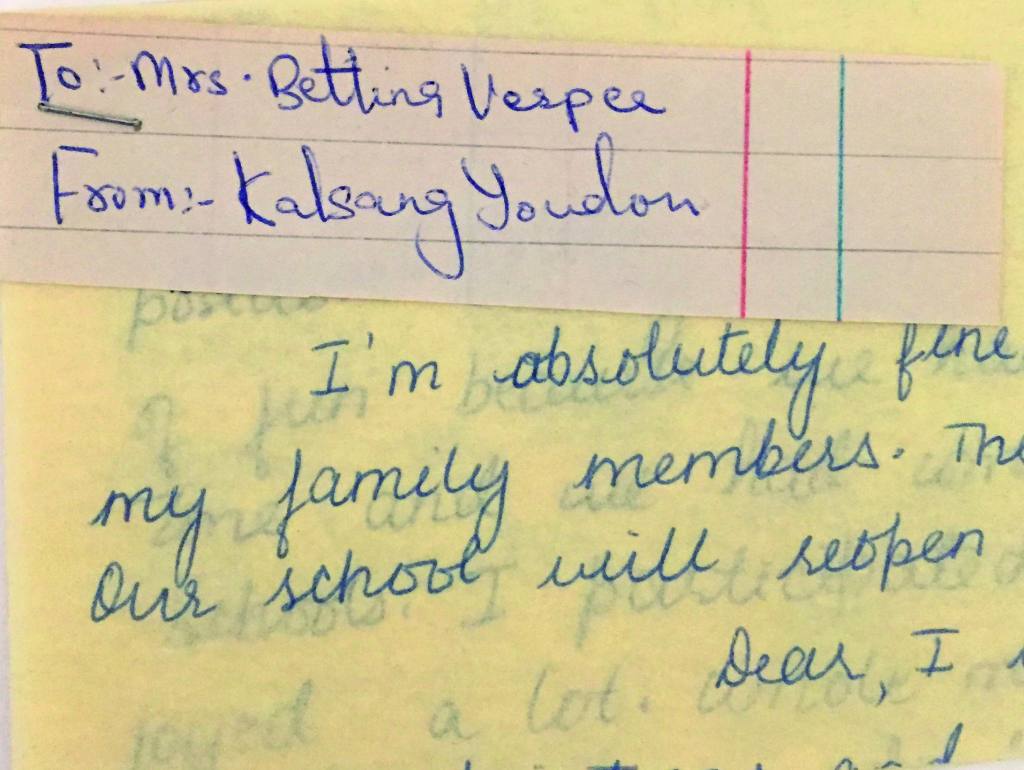 To:- Mrs. Bettina Vespee
From:- Kalsang Youdon
I'm absolutely fine
my family members. The
Our school will reopen
Dear, I